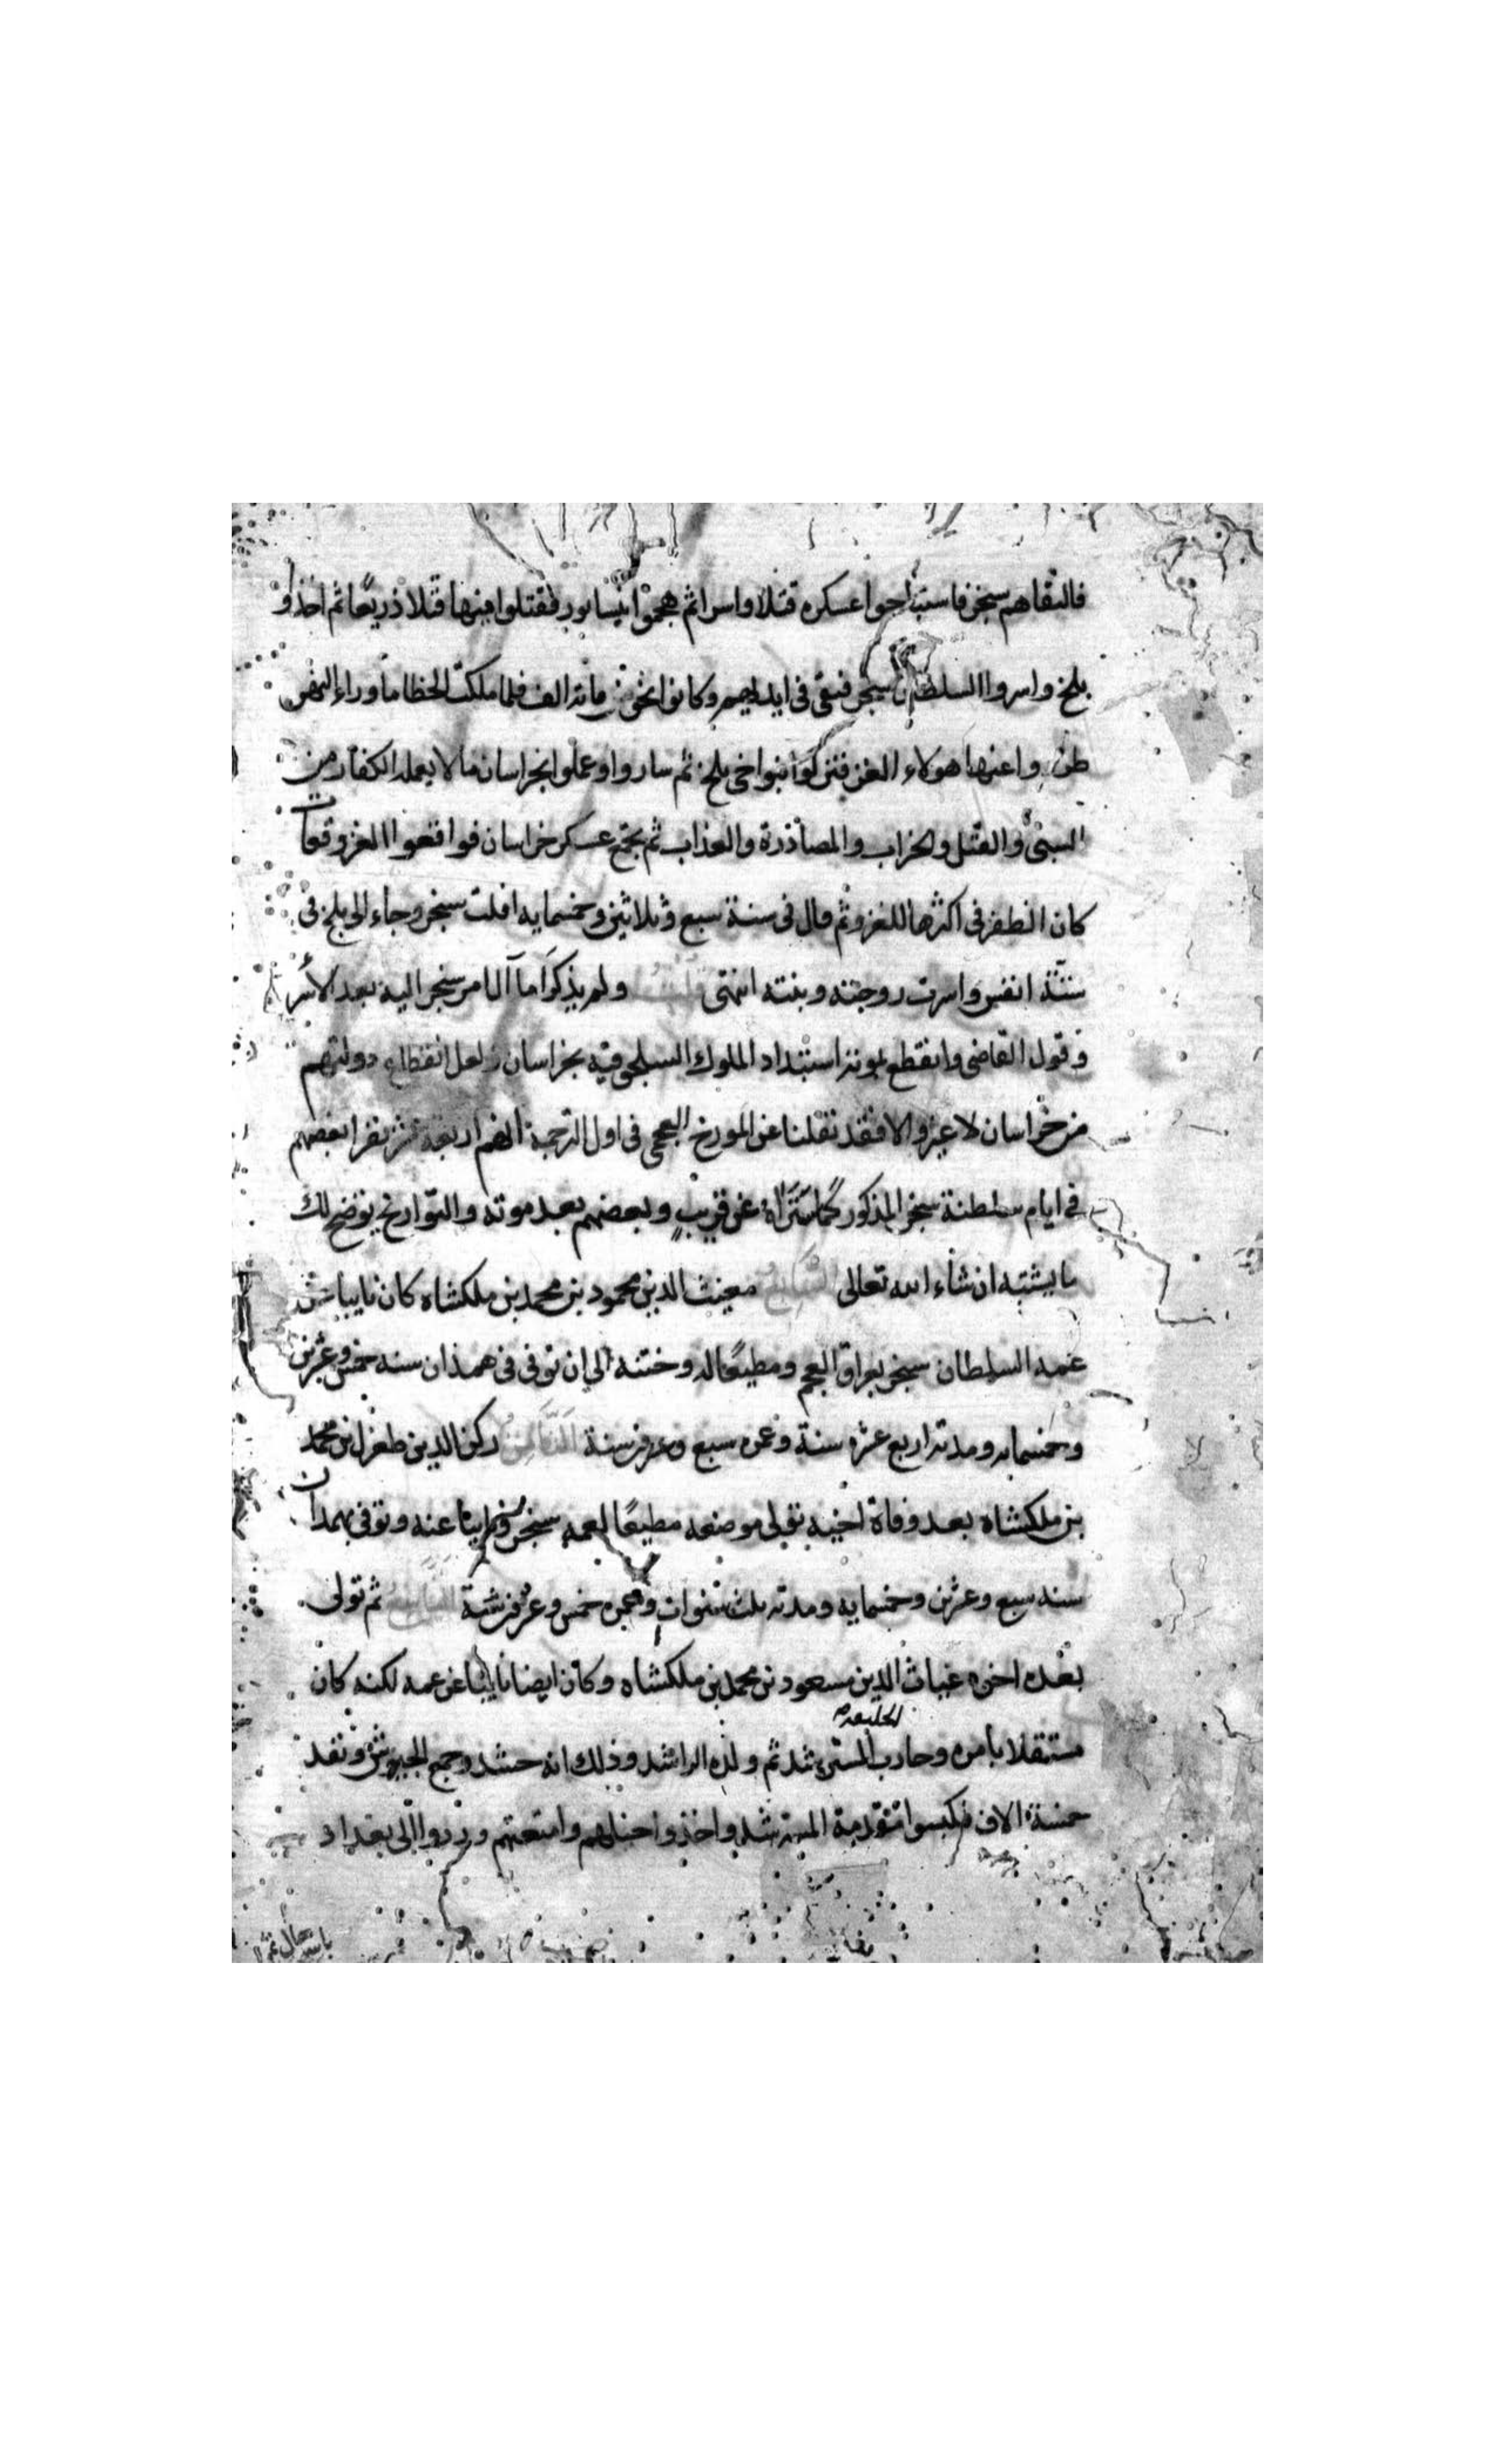 فالتقاهم سنجر فاستباحوا عسكره قتلا واسرا ثم هجموا نيسابور فقتلوا فيها قتلا ذريعا ثم اخذوا
بلخ واسروا السلطان سنجر فبقى فى ايديهم وكانوا نحو من مائة الف فلما ملكت الخطا ما وراء النهر
هولاء الغز فتركوا بنواحى بلخ ثم ساروا وعملوا بخراسان ما لا يعمله الكفار من
السبى والقتل والخراب والمصادرة والعذاب ثم تجمع عسكر خراسان فواقعوا الغز وقعات
كان الظفر فى اكثرها للغز وثم قال فى سنة سبع وثلاثين وخمسمايه افلت سنجر وجاء الى بلخ فى
ستة انفس واسرت زوجته وبنته انتهى قلت ولم يذكرا ما آل امر سنجر اليه بعد الاسر
وقول القاضى وانقطع بموته استبداد الملوك السلجوقيه بخراسان لعل انقطاع دولتهم
من خراسان لا غير والا فقد نقلنا عن المورخ العجمى فى اول الترجمة انهم اربعة عشر نفرا بعضهم
فى ايام سلطنة سنجر المذكور كما ستراه عن قريب وبعضهم بعد موته والتواريخ يوضح لك
ما يشتبه ان شاء الله تعالى السابع مغيث الدين محمود بن محمد بن ملكشاه كان نايبا من
عمه السلطان سنجر بعراق العجم ومطيعا له وختنه الى ان توفى فى همذان سنه خمس وعشرين
وخمسمايه ومدته اربع عشره سنة وعمره سبع وعشرين سنة الثامن ركن الدين طغرل بن محمد
بن ملكشاه بعد وفاة اخيه تولى موضعه مطيعا لعمه سنجر ونايبا عنه وتوفى بهمدان
سنه سبع وعشرين وخمسمايه ومدته ثلث سنوات وعمره خمس وعشرين سنة التاسع ثم تولى
بعده اخوه غياث الدين مسعود بن محمد بن ملكشاه وكان ايضا نايبا عن عمه لكنه كان
مستقلا بامره وحارب الخليفه المسترشد ثم ولده الراشد وذلك انه حشد وجمع الجيوش ونفد
خمسة الاف فكبسوا مقدمة المسترشد واخذوا خيلهم وامتعتهم وردوا الى بغداد